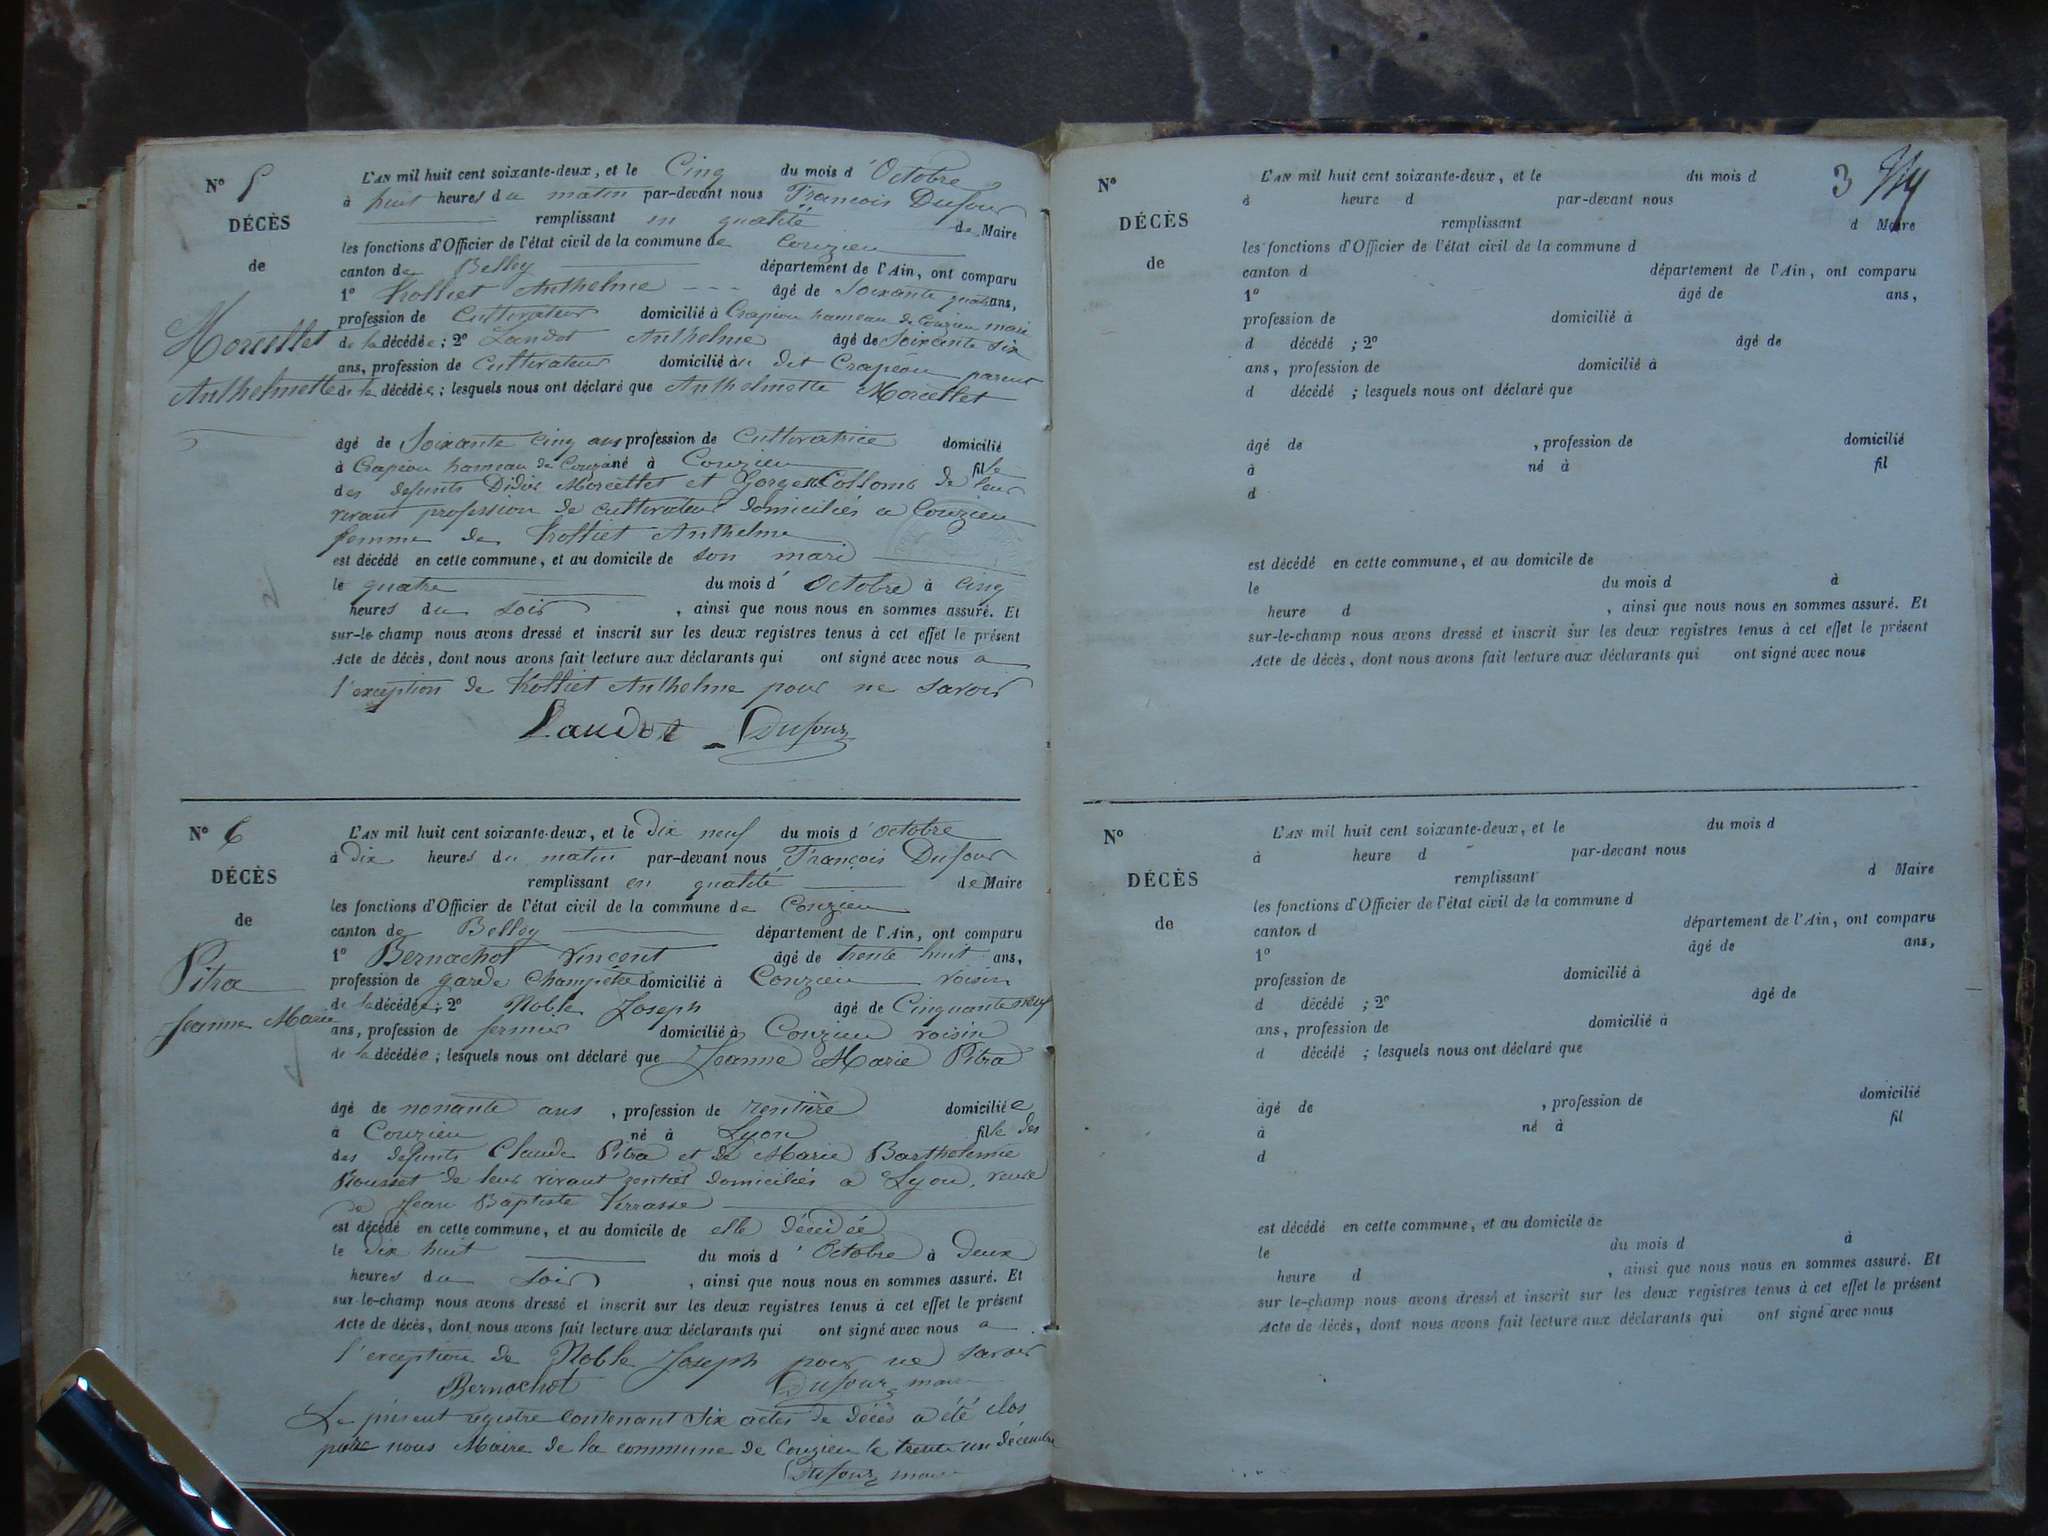 N° 5
DÉCÈS
de
Morcellet
Anthelmette
L'AN mil huit cent soixante-deux, et le Cinq du mois d'Octobre
à huit heures du matin par-devant nous François Dufour
remplissant en qualité de Maire
les fonctions d'Officier de l'état civil de la commune de Conzieu
canton de Belley département de l'Ain, ont comparu
1° Anthelme âgé de Soixante quatre ans,
profession de Cultivateur domicilié à Crapéou hameau de Conzieu mari
de la décédée ; 2° Landot Anthelme âgé de Soixante six
ans, profession de Cultivateur domicilié au dit Crapéou parent
de la décédée ; lesquels nous ont déclaré que Anthelmette Morcellet
âgé de Soixante cinq ans profession de Cultivatrice domicilié
à Crapéou hameau de né à Conzieu fille
des defunts Didier Morcellet et Collomb de leur
vivant profession de cultivateur domiciliés a Conzieu
femme de Anthelme
est décédé en cette commune, et au domicile de son mari
le quatre du mois d'Octobre à cinq
heures du soir , ainsi que nous nous en sommes assuré. Et
sur-le-champ nous avons dressé et inscrit sur les deux registres tenus à cet effet le présent
Acte de décès, dont nous avons fait lecture aux déclarants qui ont signé avec nous a
l'exception de Anthelme pour ne savoir
Landot Dufour
N° 6
DÉCÈS
de
Pitra
Jeanne Marie
L'AN mil huit cent soixante-deux, et le dix neuf du mois d'Octobre
à dix heures du matin par-devant nous François Dufour
remplissant en qualité de Maire
les fonctions d'Officier de l'état civil de la commune de Conzieu
canton de Belley département de l'Ain, ont comparu
1° Bernachot Vincent âgé de trente huit ans,
profession de garde Champêtre domicilié à Conzieu voisin
de la décédée ; 2° Noble Joseph âgé de Cinquante neuf
ans, profession de fermier domicilié à Conzieu voisin
de la décédée ; lesquels nous ont déclaré que Jeanne Marie Pitra
âgé de nonante ans , profession de rentière domiciliée
à Conzieu né à Lyon fille des
des defunts Claude Pitra et de Marie Barthelemie
Rousset de leur vivant rentier domiciliés a Lyon, veuve
de Jean Baptiste Verrasse
est décédé en cette commune, et au domicile de elle décédée
le dix huit du mois d'Octobre à deux
heures du soir , ainsi que nous nous en sommes assuré. Et
sur-le-champ nous avons dressé et inscrit sur les deux registres tenus à cet effet le présent
Acte de décès, dont nous avons fait lecture aux déclarants qui ont signé avec nous a
l'exception de Noble Joseph pour ne savoir
Bernachot Dufour maire
Le présent registre contenant Six actes de décès a été clos
par nous Maire de la commune de Conzieu le trente un décembre
Dufour maire
3
N°
DÉCÈS
de
L'AN mil huit cent soixante-deux, et le du mois d
à heure d par-devant nous
remplissant d Maire
les fonctions d'Officier de l'état civil de la commune d
canton d département de l'Ain, ont comparu
1° âgé de ans,
profession de domicilié à
d décédé ; 2° âgé de
ans, profession de domicilié à
d décédé ; lesquels nous ont déclaré que
âgé de , profession de domicilié
à né à fil
d
est décédé en cette commune, et au domicile de
le du mois d à
heure d , ainsi que nous nous en sommes assuré. Et
sur-le-champ nous avons dressé et inscrit sur les deux registres tenus à cet effet le présent
Acte de décès, dont nous avons fait lecture aux déclarants qui ont signé avec nous
N°
DÉCÈS
de
L'AN mil huit cent soixante-deux, et le du mois d
à heure d par-devant nous
remplissant d Maire
les fonctions d'Officier de l'état civil de la commune d
canton d département de l'Ain, ont comparu
1° âgé de ans,
profession de domicilié à
d décédé ; 2° âgé de
ans, profession de domicilié à
d décédé ; lesquels nous ont déclaré que
âgé de , profession de domicilié
à né à fil
d
est décédé en cette commune, et au domicile de
le du mois d à
heure d , ainsi que nous nous en sommes assuré. Et
sur le-champ nous avons dressé et inscrit sur les deux registres tenus à cet effet le présent
Acte de décès, dont nous avons fait lecture aux déclarants qui ont signé avec nous